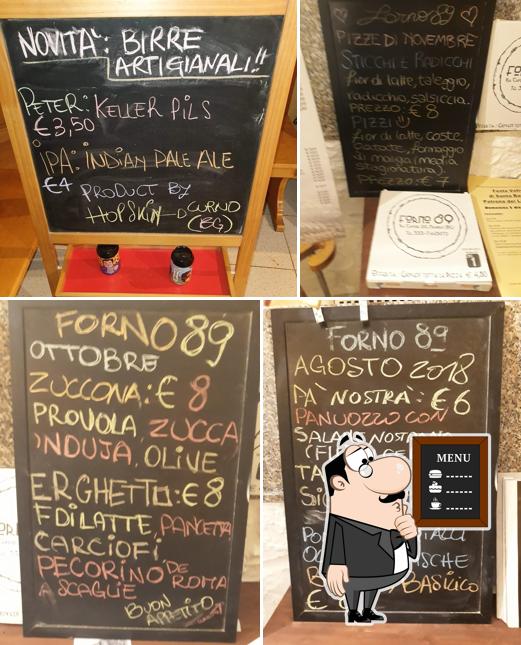 NOVITA': BIRRE
ARTIGIANALI!!
PETER: KELLER PILS
€3,50
IPA: INDIAN PALE ALE
€4 PRODUCT BY
HOPSKIN CURNO
(BG)
Forno 89
PIZZE DI NOVEMBRE
STICCHI E RADICCHI
fior di latte, taleggio,
radicchio, salsiccia.
PREZZO: € 8
PIZZI
fior di latte, coste,
patate, formaggio
di malga (media
stagionatura).
PREZZO: € 7
FORNO 89
FORNO 89
OTTOBRE
ZUCCONA: € 8
PROVOLA, ZUCCA
'NDUJA, OLIVE
ERGHETTO: € 8
F DI LATTE, PANCETTA
CARCIOFI
PECORINO DE
A SCAGLIE ROMA
BUON
APPETITO
FORNO 89
AGOSTO 2018
PA' NOSTRA': € 6
PANUOZZO CON
MENU
BASILICO
€